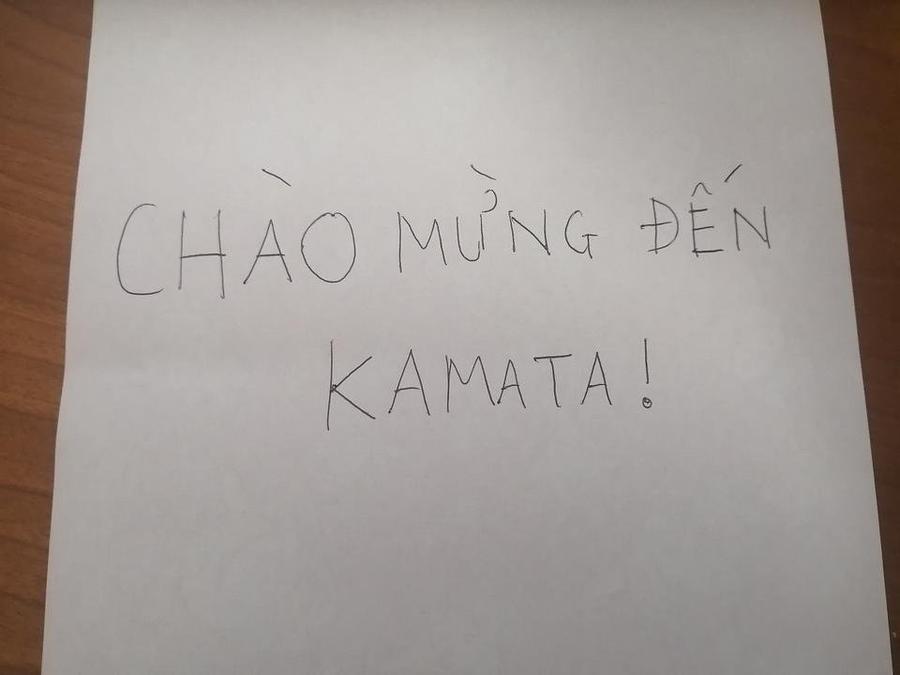 CHÀO MỪNG ĐẾN
KAMATA!